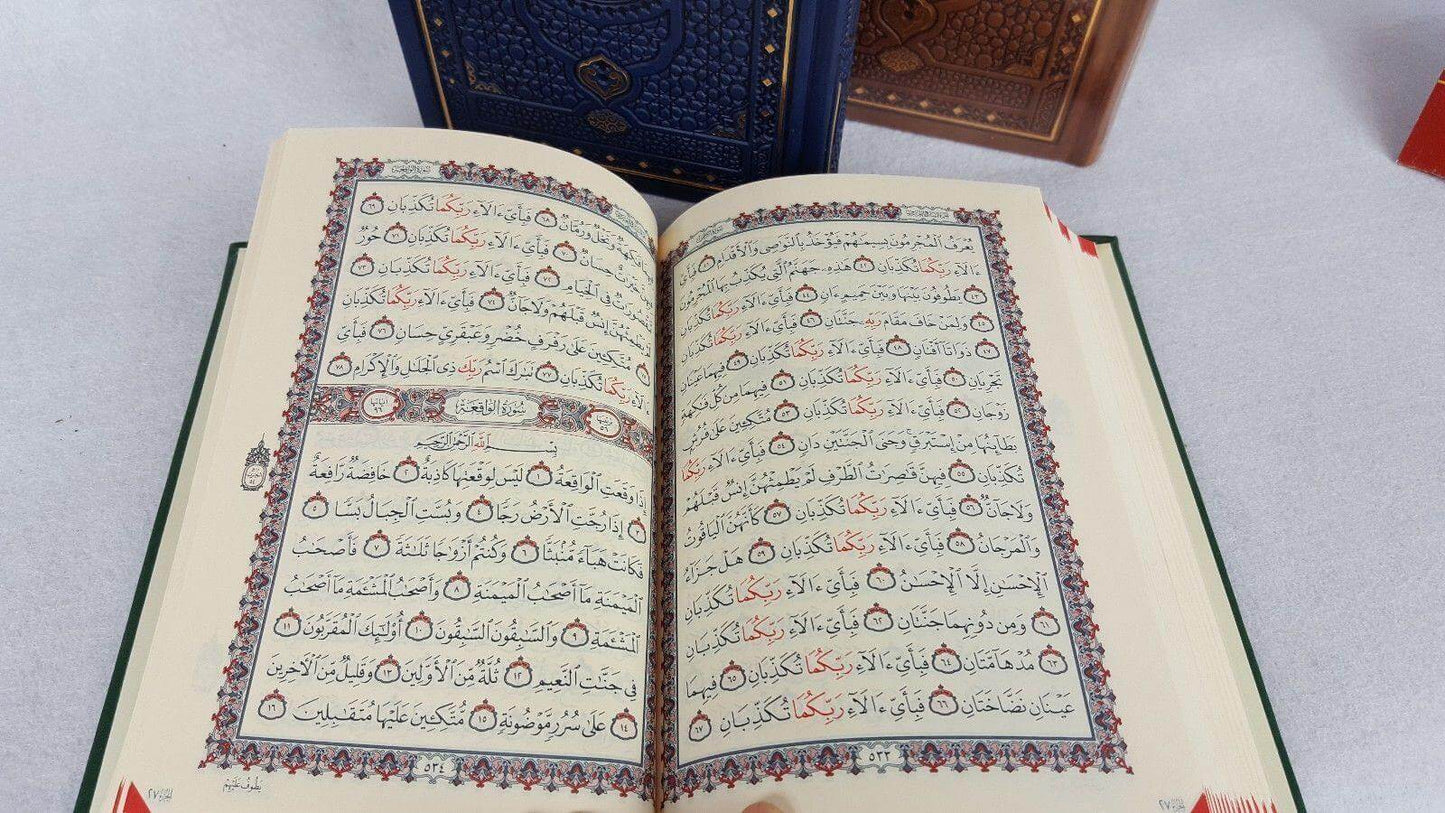 يُعْرَفُ ٱلْمُجْرِمُونَ بِسِيمَٰهُمْ فَيُؤْخَذُ بِٱلنَّوَٰصِى وَٱلْأَقْدَامِ ٤١ فَبِأَىِّ
ءَالَآءِ رَبِّكُمَا تُكَذِّبَانِ ٤٢ هَٰذِهِۦ جَهَنَّمُ ٱلَّتِى يُكَذِّبُ بِهَا ٱلْمُجْرِمُونَ
٤٣ يَطُوفُونَ بَيْنَهَا وَبَيْنَ حَمِيمٍ ءَانٍ ٤٤ فَبِأَىِّ ءَالَآءِ رَبِّكُمَا تُكَذِّبَانِ
٤٥ وَلِمَنْ خَافَ مَقَامَ رَبِّهِۦ جَنَّتَانِ ٤٦ فَبِأَىِّ ءَالَآءِ رَبِّكُمَا تُكَذِّبَانِ
٤٧ ذَوَاتَآ أَفْنَانٍ ٤٨ فَبِأَىِّ ءَالَآءِ رَبِّكُمَا تُكَذِّبَانِ ٤٩ فِيهِمَا عَيْنَانِ
تَجْرِيَانِ ٥٠ فَبِأَىِّ ءَالَآءِ رَبِّكُمَا تُكَذِّبَانِ ٥١ فِيهِمَا مِن كُلِّ فَٰكِهَةٍ
زَوْجَانِ ٥٢ فَبِأَىِّ ءَالَآءِ رَبِّكُمَا تُكَذِّبَانِ ٥٣ مُتَّكِـِٔينَ عَلَىٰ فُرُشٍۭ
بَطَآئِنُهَا مِنْ إِسْتَبْرَقٍ ۚ وَجَنَى ٱلْجَنَّتَيْنِ دَانٍ ٥٤ فَبِأَىِّ ءَالَآءِ رَبِّكُمَا
تُكَذِّبَانِ ٥٥ فِيهِنَّ قَٰصِرَٰتُ ٱلطَّرْفِ لَمْ يَطْمِثْهُنَّ إِنسٌ قَبْلَهُمْ
وَلَا جَآنٌّ ٥٦ فَبِأَىِّ ءَالَآءِ رَبِّكُمَا تُكَذِّبَانِ ٥٧ كَأَنَّهُنَّ ٱلْيَاقُوتُ
وَٱلْمَرْجَانُ ٥٨ فَبِأَىِّ ءَالَآءِ رَبِّكُمَا تُكَذِّبَانِ ٥٩ هَلْ جَزَآءُ
ٱلْإِحْسَٰنِ إِلَّا ٱلْإِحْسَٰنُ ٦٠ فَبِأَىِّ ءَالَآءِ رَبِّكُمَا تُكَذِّبَانِ
٦١ وَمِن دُونِهِمَا جَنَّتَانِ ٦٢ فَبِأَىِّ ءَالَآءِ رَبِّكُمَا تُكَذِّبَانِ
٦٣ مُدْهَآمَّتَانِ ٦٤ فَبِأَىِّ ءَالَآءِ رَبِّكُمَا تُكَذِّبَانِ ٦٥ فِيهِمَا
عَيْنَانِ نَضَّاخَتَانِ ٦٦ فَبِأَىِّ ءَالَآءِ رَبِّكُمَا تُكَذِّبَانِ ٦٧
٥٣٣
الجزء ٢٧
فَٰكِهَةٌ وَنَخْلٌ وَرُمَّانٌ ٦٨ فَبِأَىِّ ءَالَآءِ رَبِّكُمَا تُكَذِّبَانِ ٦٩
خَيْرَٰتٌ حِسَانٌ ٧٠ فَبِأَىِّ ءَالَآءِ رَبِّكُمَا تُكَذِّبَانِ ٧١ حُورٌ
مَّقْصُورَٰتٌ فِى ٱلْخِيَامِ ٧٢ فَبِأَىِّ ءَالَآءِ رَبِّكُمَا تُكَذِّبَانِ ٧٣
يَطْمِثْهُنَّ إِنسٌ قَبْلَهُمْ وَلَا جَآنٌّ ٧٤ فَبِأَىِّ ءَالَآءِ رَبِّكُمَا تُكَذِّبَانِ
٧٥ مُتَّكِـِٔينَ عَلَىٰ رَفْرَفٍ خُضْرٍ وَعَبْقَرِىٍّ حِسَانٍ ٧٦ فَبِأَىِّ
ءَالَآءِ رَبِّكُمَا تُكَذِّبَانِ ٧٧ تَبَٰرَكَ ٱسْمُ رَبِّكَ ذِى ٱلْجَلَٰلِ وَٱلْإِكْرَامِ ٧٨
سُورَةُ الوَاقِعَةِ
بِسْمِ ٱللَّهِ ٱلرَّحْمَٰنِ ٱلرَّحِيمِ
إِذَا وَقَعَتِ ٱلْوَاقِعَةُ ١ لَيْسَ لِوَقْعَتِهَا كَاذِبَةٌ ٢ خَافِضَةٌ رَّافِعَةٌ
٣ إِذَا رُجَّتِ ٱلْأَرْضُ رَجًّا ٤ وَبُسَّتِ ٱلْجِبَالُ بَسًّا ٥
فَكَانَتْ هَبَآءً مُّنۢبَثًّا ٦ وَكُنتُمْ أَزْوَٰجًا ثَلَٰثَةً ٧ فَأَصْحَٰبُ
ٱلْمَيْمَنَةِ مَآ أَصْحَٰبُ ٱلْمَيْمَنَةِ ٨ وَأَصْحَٰبُ ٱلْمَشْـَٔمَةِ مَآ أَصْحَٰبُ
ٱلْمَشْـَٔمَةِ ٩ وَٱلسَّٰبِقُونَ ٱلسَّٰبِقُونَ ١٠ أُو۟لَٰٓئِكَ ٱلْمُقَرَّبُونَ ١١
فِى جَنَّٰتِ ٱلنَّعِيمِ ١٢ ثُلَّةٌ مِّنَ ٱلْأَوَّلِينَ ١٣ وَقَلِيلٌ مِّنَ ٱلْءَاخِرِينَ
١٤ عَلَىٰ سُرُرٍ مَّوْضُونَةٍ ١٥ مُّتَّكِـِٔينَ عَلَيْهَا مُتَقَٰبِلِينَ ١٦
٥٣٤
يَطُوفُ عَلَيْهِمْ
الجزء ٢٧